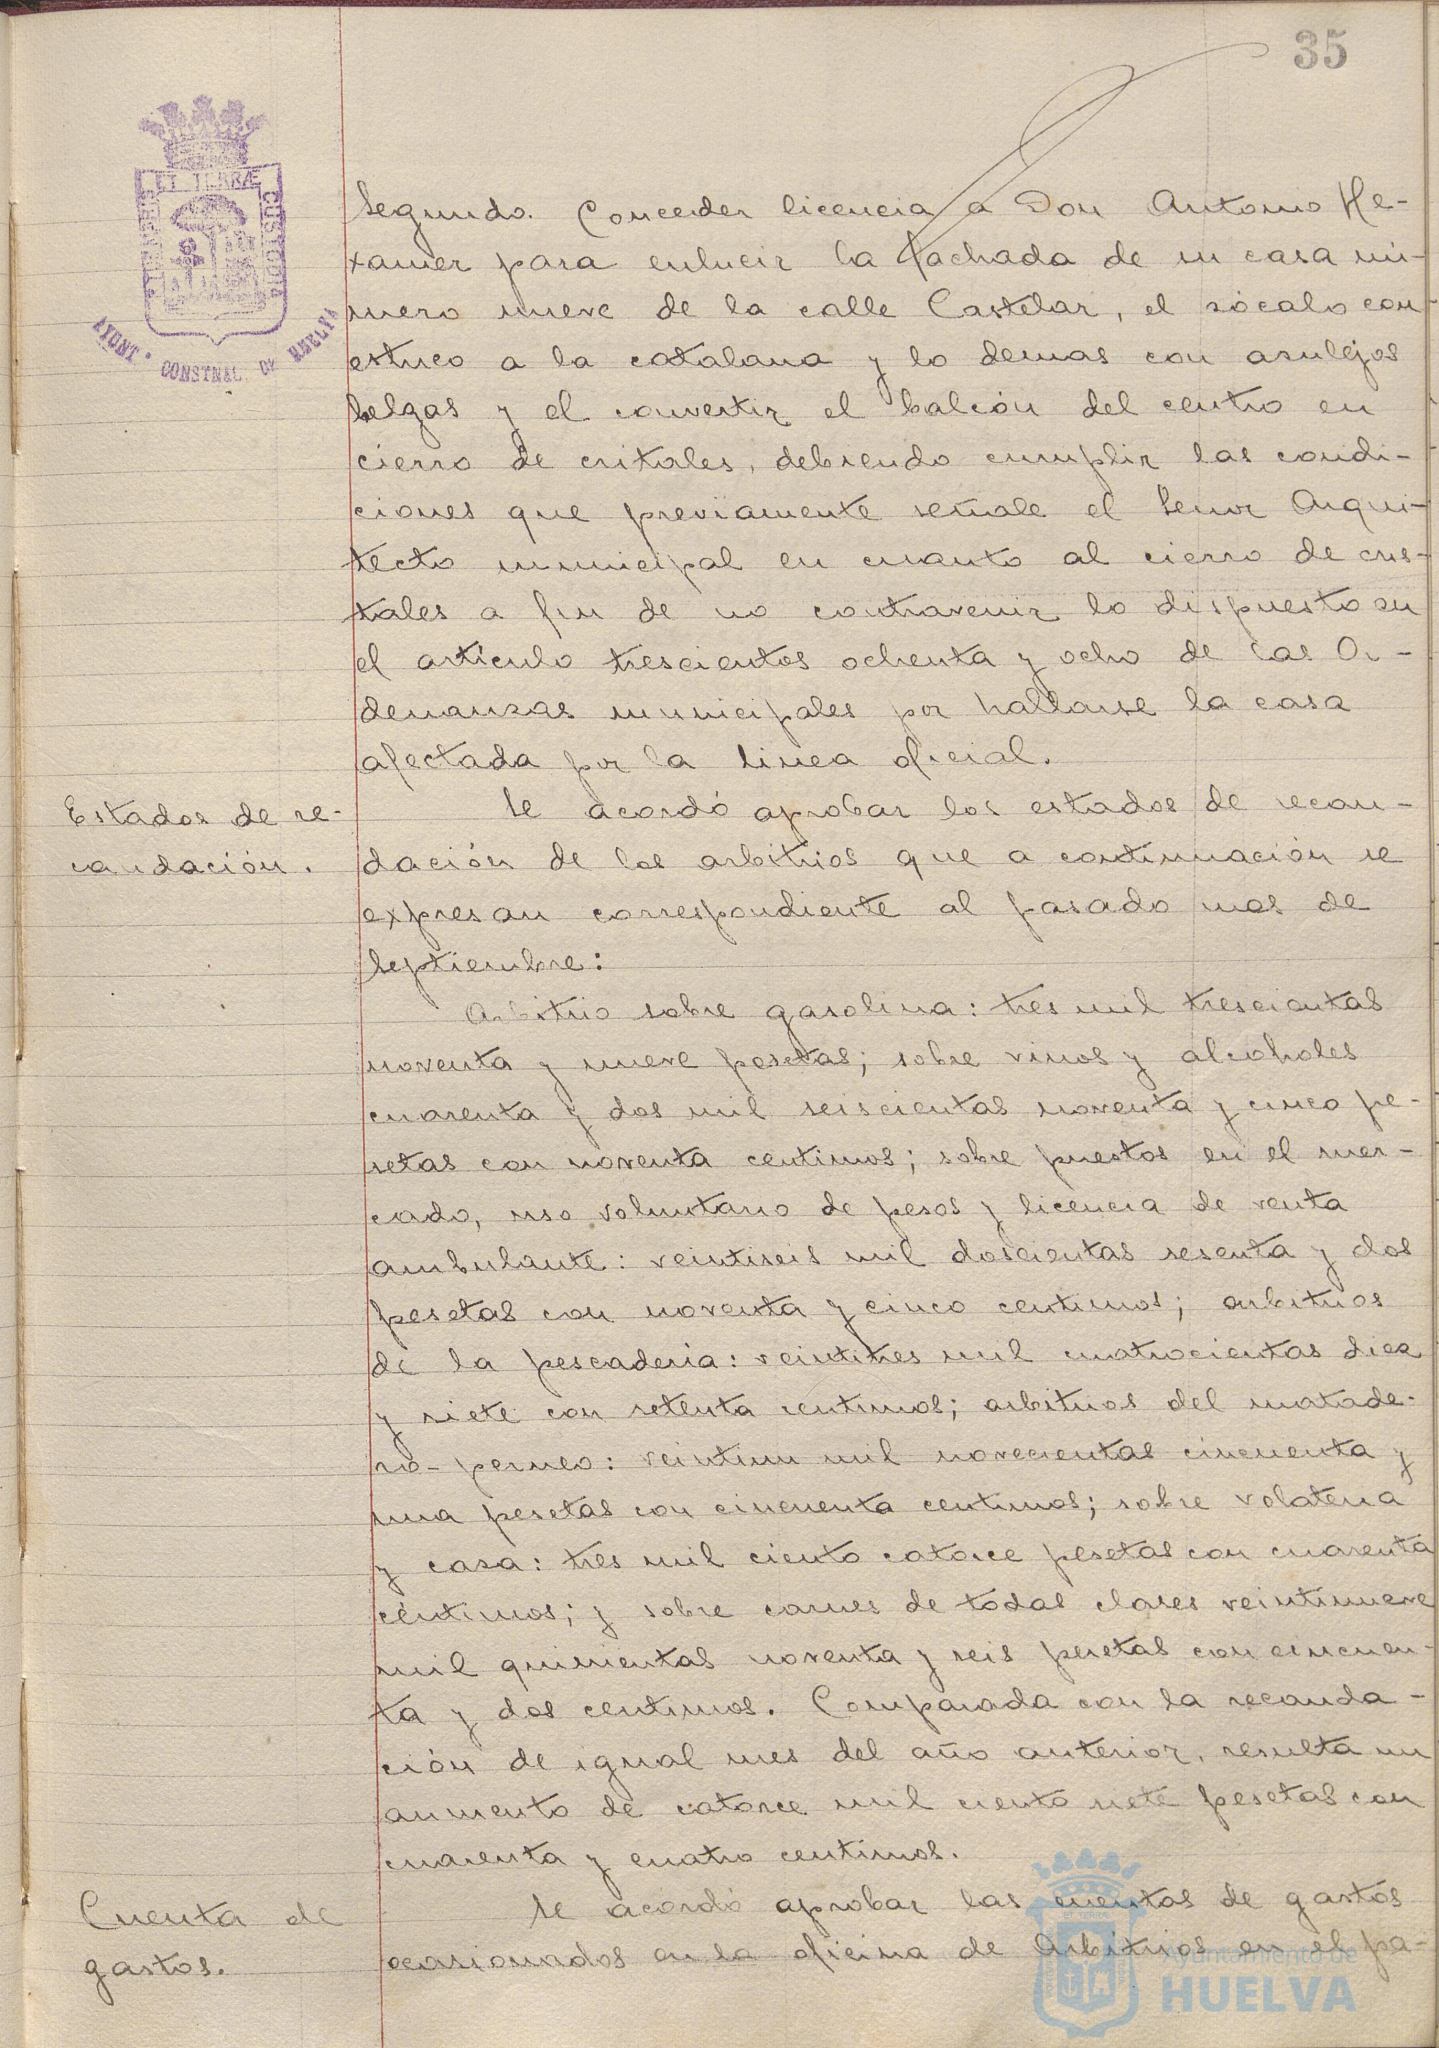 35
PORTUS MARIS ET TERRÆ CUSTODIA
AYUNT. CONSTNAL. DE HUELVA
Segundo. Conceder licencia a Don Antonio He-
xamer para enlucir la fachada de su casa nú-
mero nueve de la calle Castelar, el zócalo con
estuco a la catalana y lo demas con asulejos
belgas y el convertir el balcón del centro en
cierro de critales, debiendo cumplir las condi-
ciones que previamente señale el Senor Arqui-
tecto municipal en cuanto al cierro de cris-
tales a fin de no contravenir lo dispuesto en
el artículo trescientos ochenta y ocho de las Or-
denanzas municipales por hallarse la casa
afectada por la linea oficial.
Estados de re-
caudación.
Se acordó aprobar los estados de recau-
dación de los arbitrios que a continuación se
expresan correspondiente al pasado mes de
Septiembre:
Arbitrio sobre gasolina: tres mil trescientas
noventa y nueve pesetas; sobre vinos y alcoholes
cuarenta y dos mil seiscientas noventa y cinco pe-
setas con noventa centimos; sobre puestos en el mer-
cado, uso voluntario de pesos y licencia de venta
ambulante: veintiseis mil doscientas sesenta y dos
pesetas con noventa y cinco centimos; arbitrios
de la pescadería: veintitres mil cuatrocientas diez
y siete con setenta centimos; arbitrios del matade-
ro-perneo: veintiun mil novecientas cincuenta y
una pesetas con cincuenta centimos; sobre volateria
y casa: tres mil ciento catorce pesetas con cuarenta
céntimos; y sobre carnes de todas clases veintinueve
mil quinientas noventa y seis pesetas con cincuen-
ta y dos centimos. Comparada con la recauda-
ción de igual mes del año anterior, resulta un
aumento de catorce mil ciento siete pesetas con
cuarenta y cuatro centimos.
Cuenta de
gastos.
Se acordó aprobar las cuentas de gastos
ocasionados en la oficina de Arbitrios en el pa-
Ayuntamiento de
HUELVA